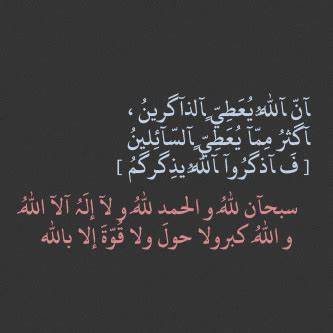 آنّ آللهُ يُعَطِيّ ٍآلذآگرينُ ،
آگثرُ مِمّآ يُعَطِيّ ٍآلسّآئِلينُ
[ فَ آذگرُوآ آللهُ يذِگرگمُ ]
سبحآن للهُ و الحمد للهُ و لآ إلَہُ آلآ اللهُ
و اللهُ كبرولا حولَ ولا قُوّةَ إلا بالله